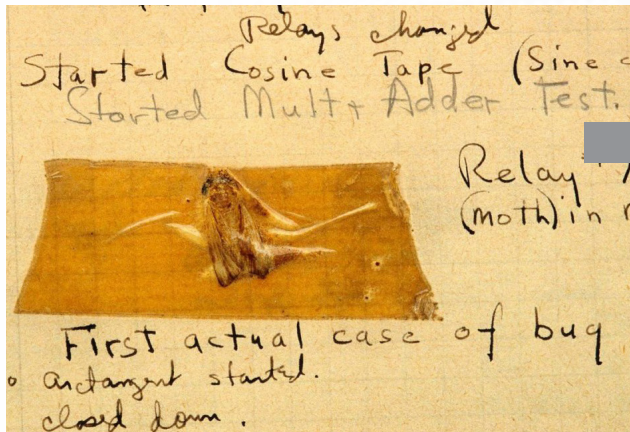 Relays changed
Started Cosine Tape (Sine
Started Mult + Adder Test.
Relay
(moth) in
First actual case of bug
arctangent started.
closed down.